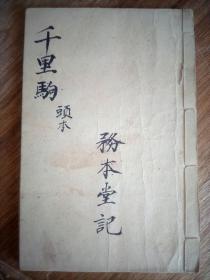 千里駒
頭本
務本堂記